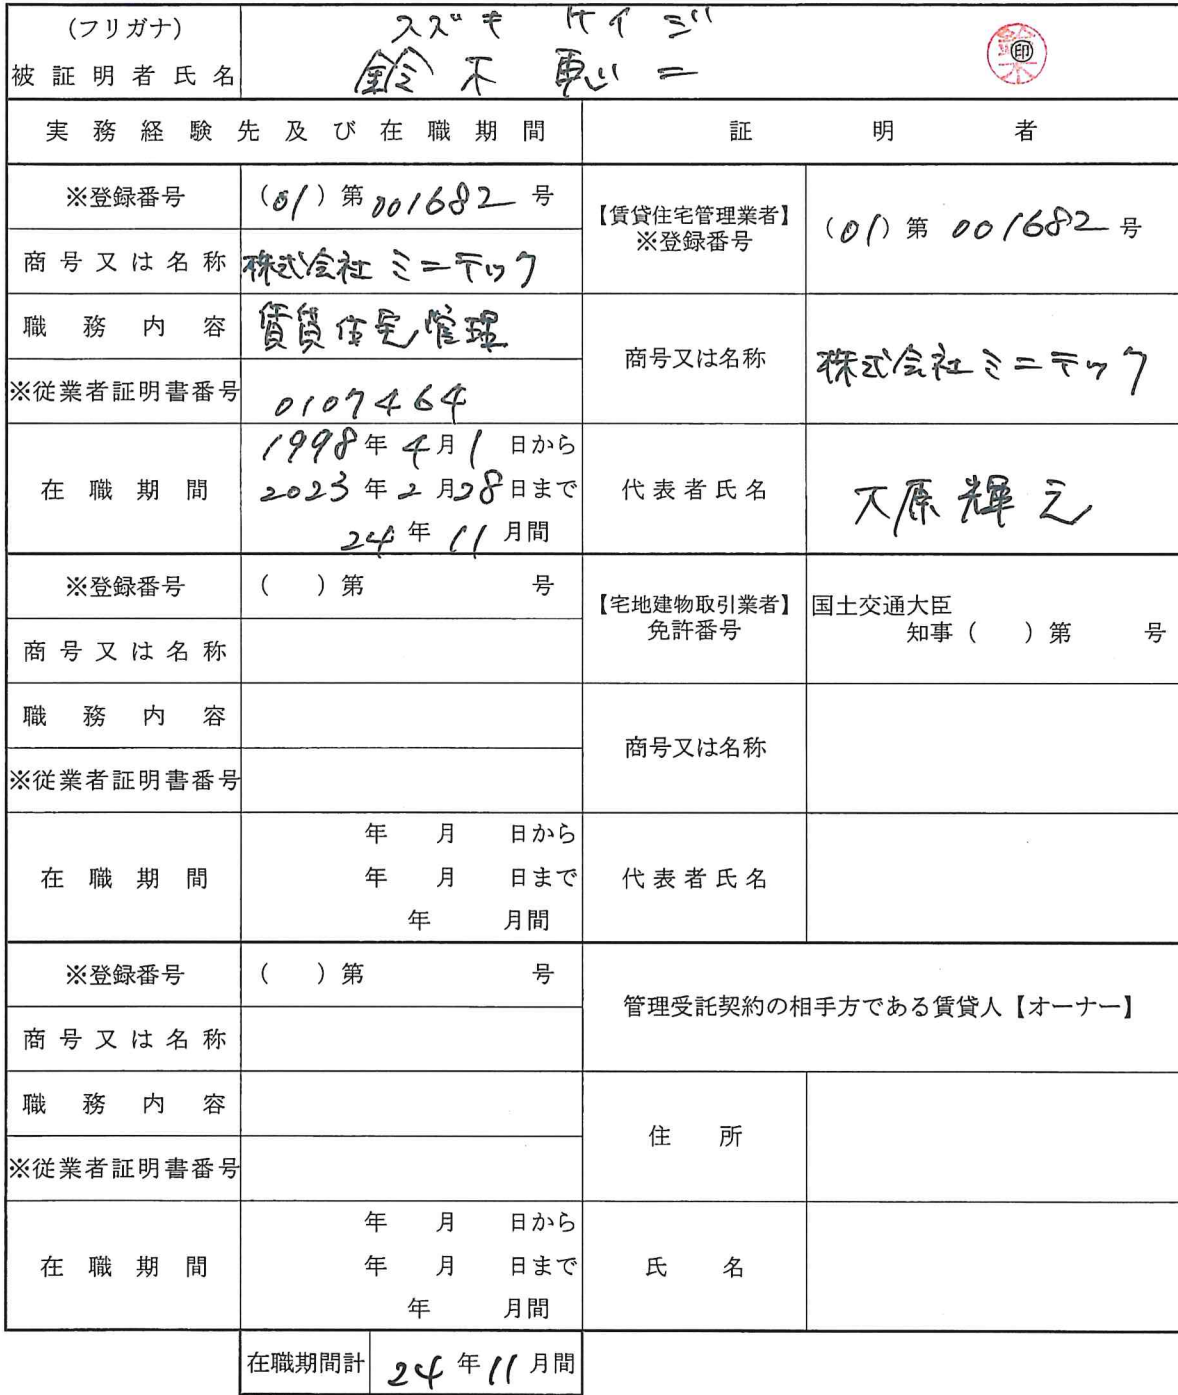 (フリガナ) スズキ ケイジ
被証明者氏名 鈴木 恵二 ㊞
実務経験先及び在職期間 証明者
※登録番号 (01)第001682号
【賃貸住宅管理業者】
※登録番号 (01)第001682号
商号又は名称 株式会社ミニテック
職務内容 賃貸住宅管理
商号又は名称 株式会社ミニテック
※従業者証明書番号 0107464
在職期間
1998年4月1日から
2023年2月28日まで
24年11月間
代表者氏名 大原輝元
※登録番号 ( )第 号
【宅地建物取引業者】
免許番号
国土交通大臣
知事( )第 号
商号又は名称
職務内容
商号又は名称
※従業者証明書番号
在職期間
年 月 日から
年 月 日まで
年 月間
代表者氏名
※登録番号 ( )第 号
管理受託契約の相手方である賃貸人【オーナー】
商号又は名称
職務内容
住所
※従業者証明書番号
在職期間
年 月 日から
年 月 日まで
年 月間
氏名
在職期間計 24年11月間